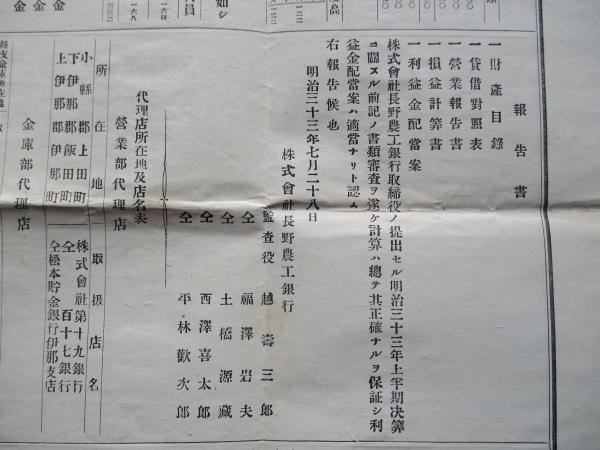 報告書
一財產目錄
一貸借對照表
一營業報告書
一損益計算書
一利益金配當案
株式會社長野農工銀行取締役ノ提出セル明治三十三年上半期决算
ニ關スル前記ノ書類審査ヲ遂ケ計算ハ總テ其正確ナルヲ保証シ利
益金配當案ハ適當ナリト認ム
右報告候也
明治三十三年七月二十八日
株式會社長野農工銀行
監査役 越壽三郎
仝 福澤岩夫
仝 土橋源藏
仝 西澤喜太郎
仝 平林歡次郎
代理店所在地及店名表
營業部代理店
所在地 取扱店名
小縣郡上田町 株式會社第十九銀行
下伊那郡飯田町 仝百十七銀行
上伊那郡伊那町 仝松本貯金銀行伊那支店
金庫部代理店